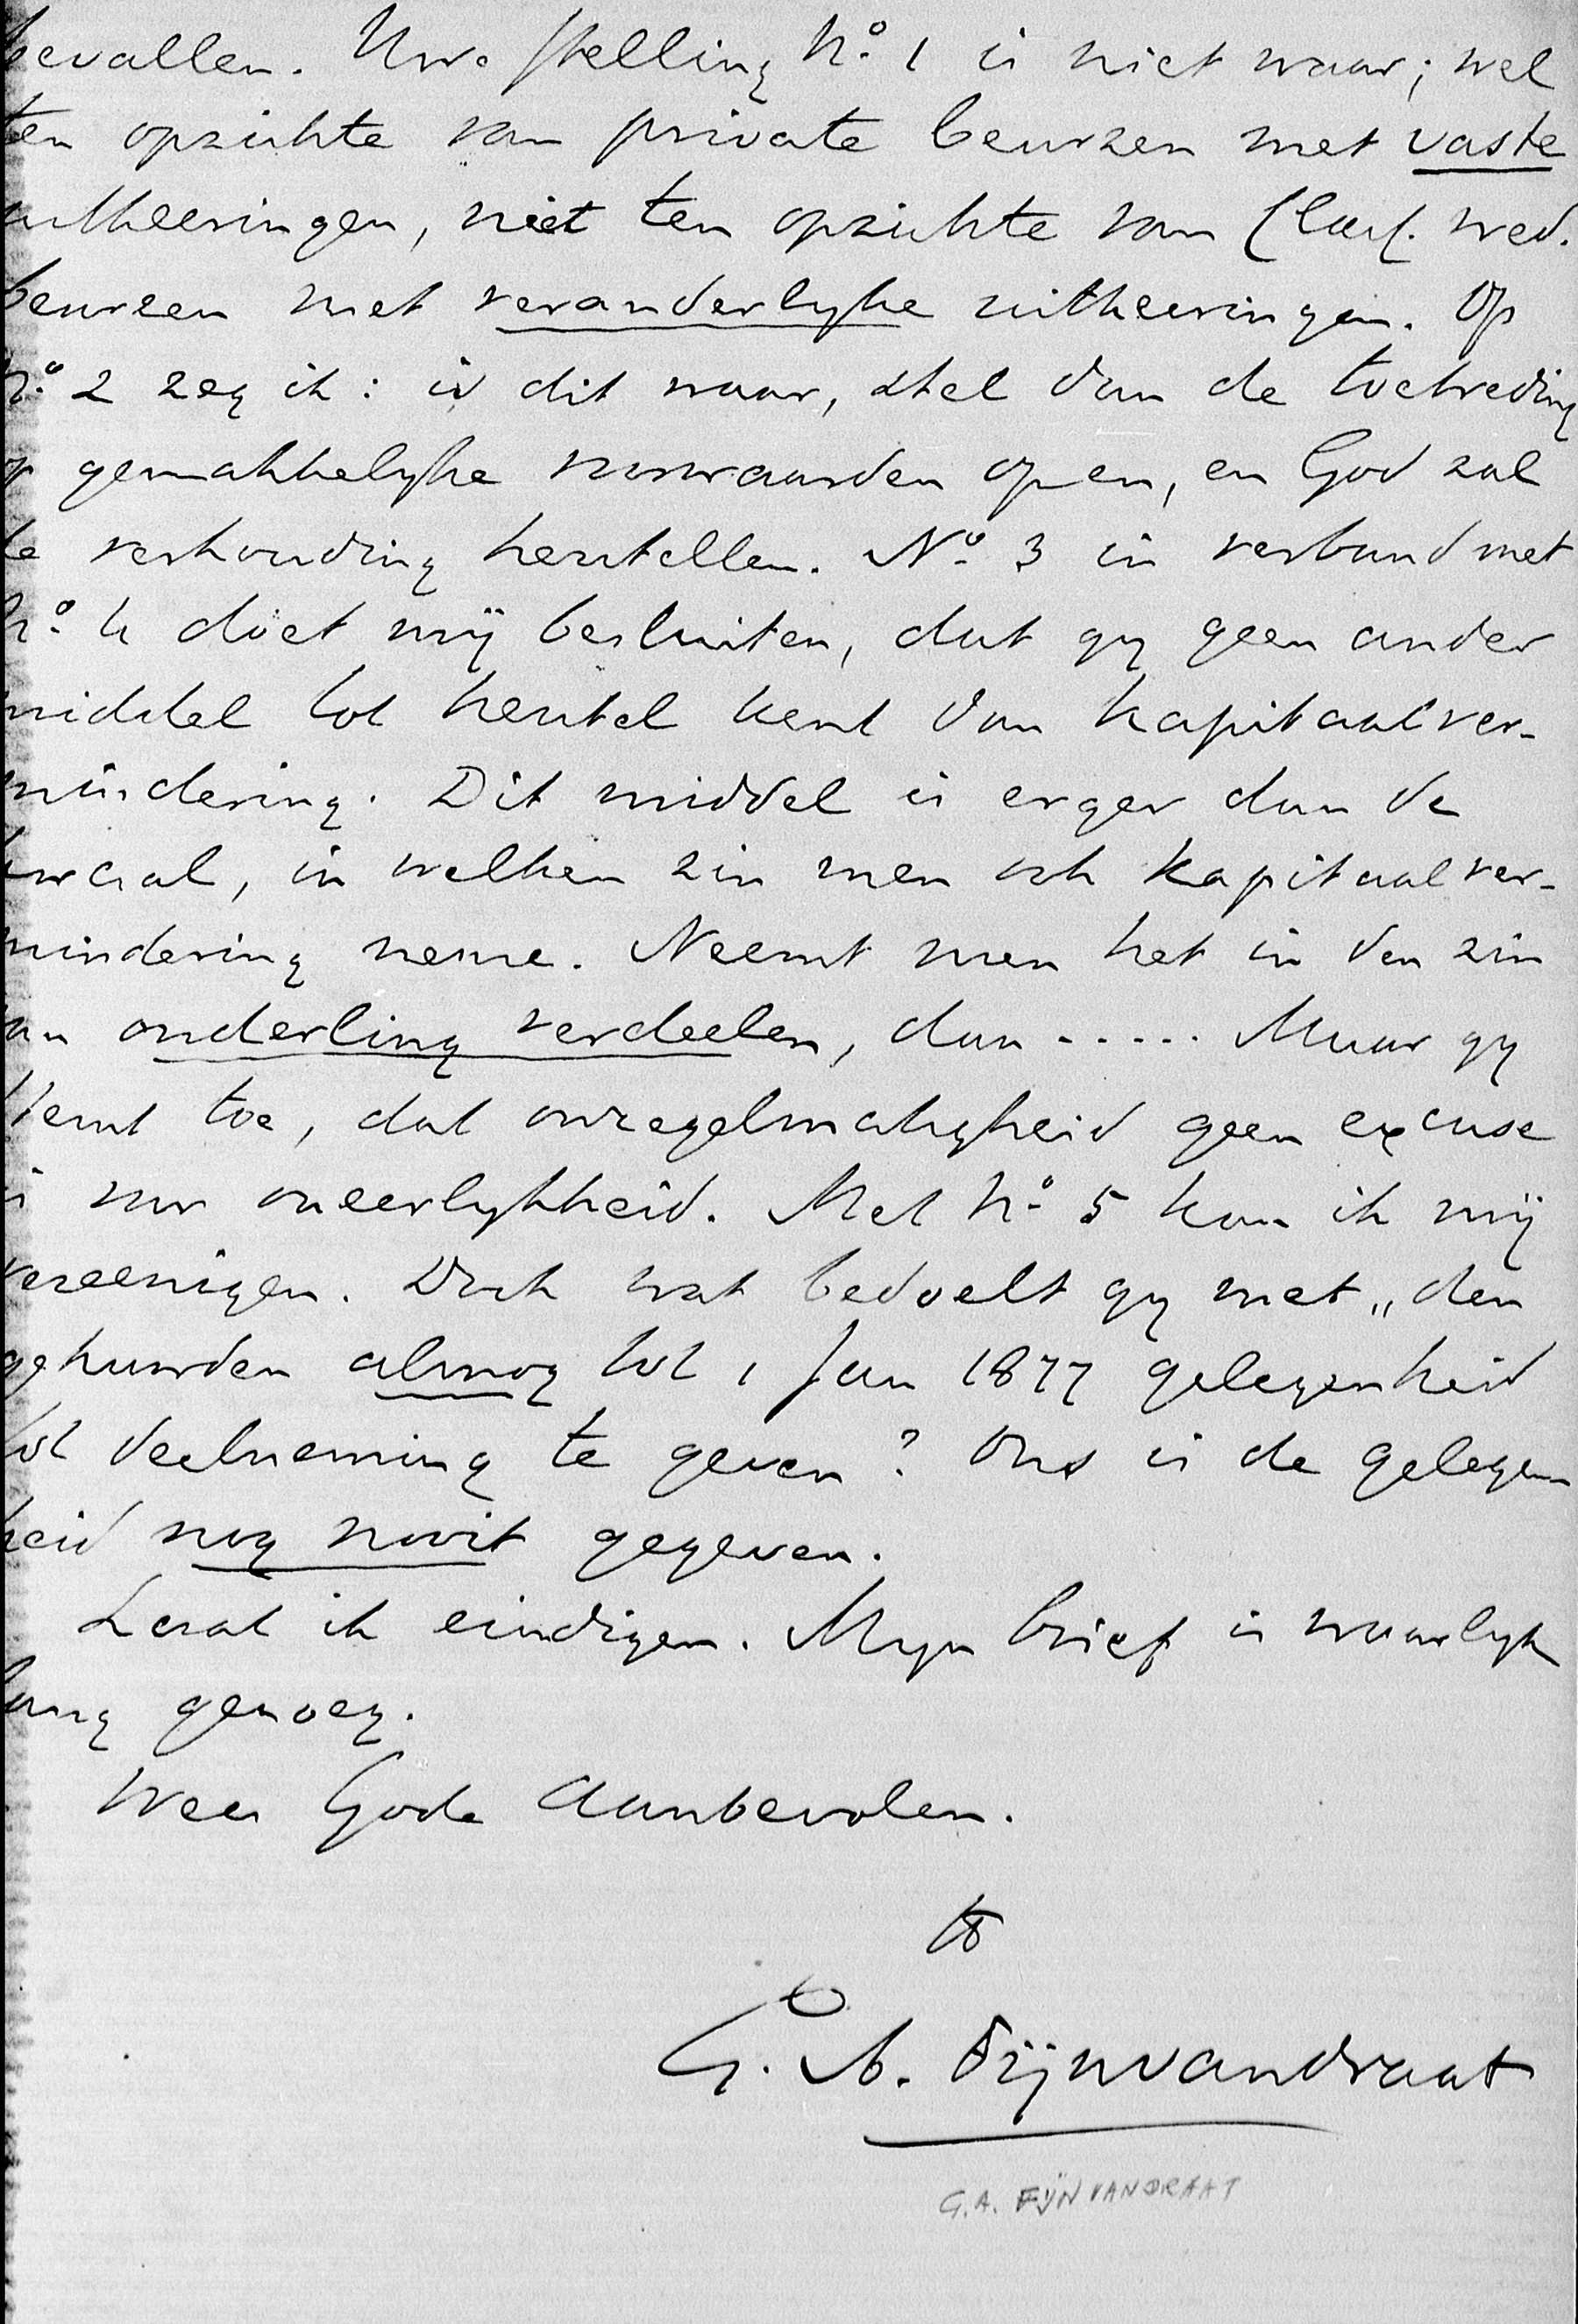 bevallen. Uwe stelling No. 1 is niet waar; wel
ten opzichte van private beurzen met vaste
uitkeeringen, niet ten opzichte van Class. wed.
beurzen met veranderlyke uitkeeringen. Op
No. 2 zeg ik: is dit waar, stel dan de toetreding
op gemakkelyke voorwaarden open, en God zal
de verhouding herstellen. No. 3 in verband met
No. 4 doet mij besluiten, dat gy geen ander
middel tot herstel kent dan kapitaalver-
mindering. Dit middel is erger dan de
kwaal, in welken zin men ook kapitaalver-
mindering neme. Neemt men het in den zin
van onderling verdeelen, dan ..... Maar gy
stemt toe, dat onregelmatigheid geen excuse
is voor oneerlykheid. Met No. 5 kan ik mij
vereenigen. Doch wat bedoelt gy met „den
gehuwden alnog tot 1 Jan 1877 gelegenheid
tot deelneming te geven? Ons is de gelegen-
heid nog nooit gegeven.
Laat ik eindigen. Myn brief is waarlyk
lang genoeg.
Wees Gode aanbevolen.
tt
G. A. Fijnvandraat
G.A. FIJNVANDRAAT